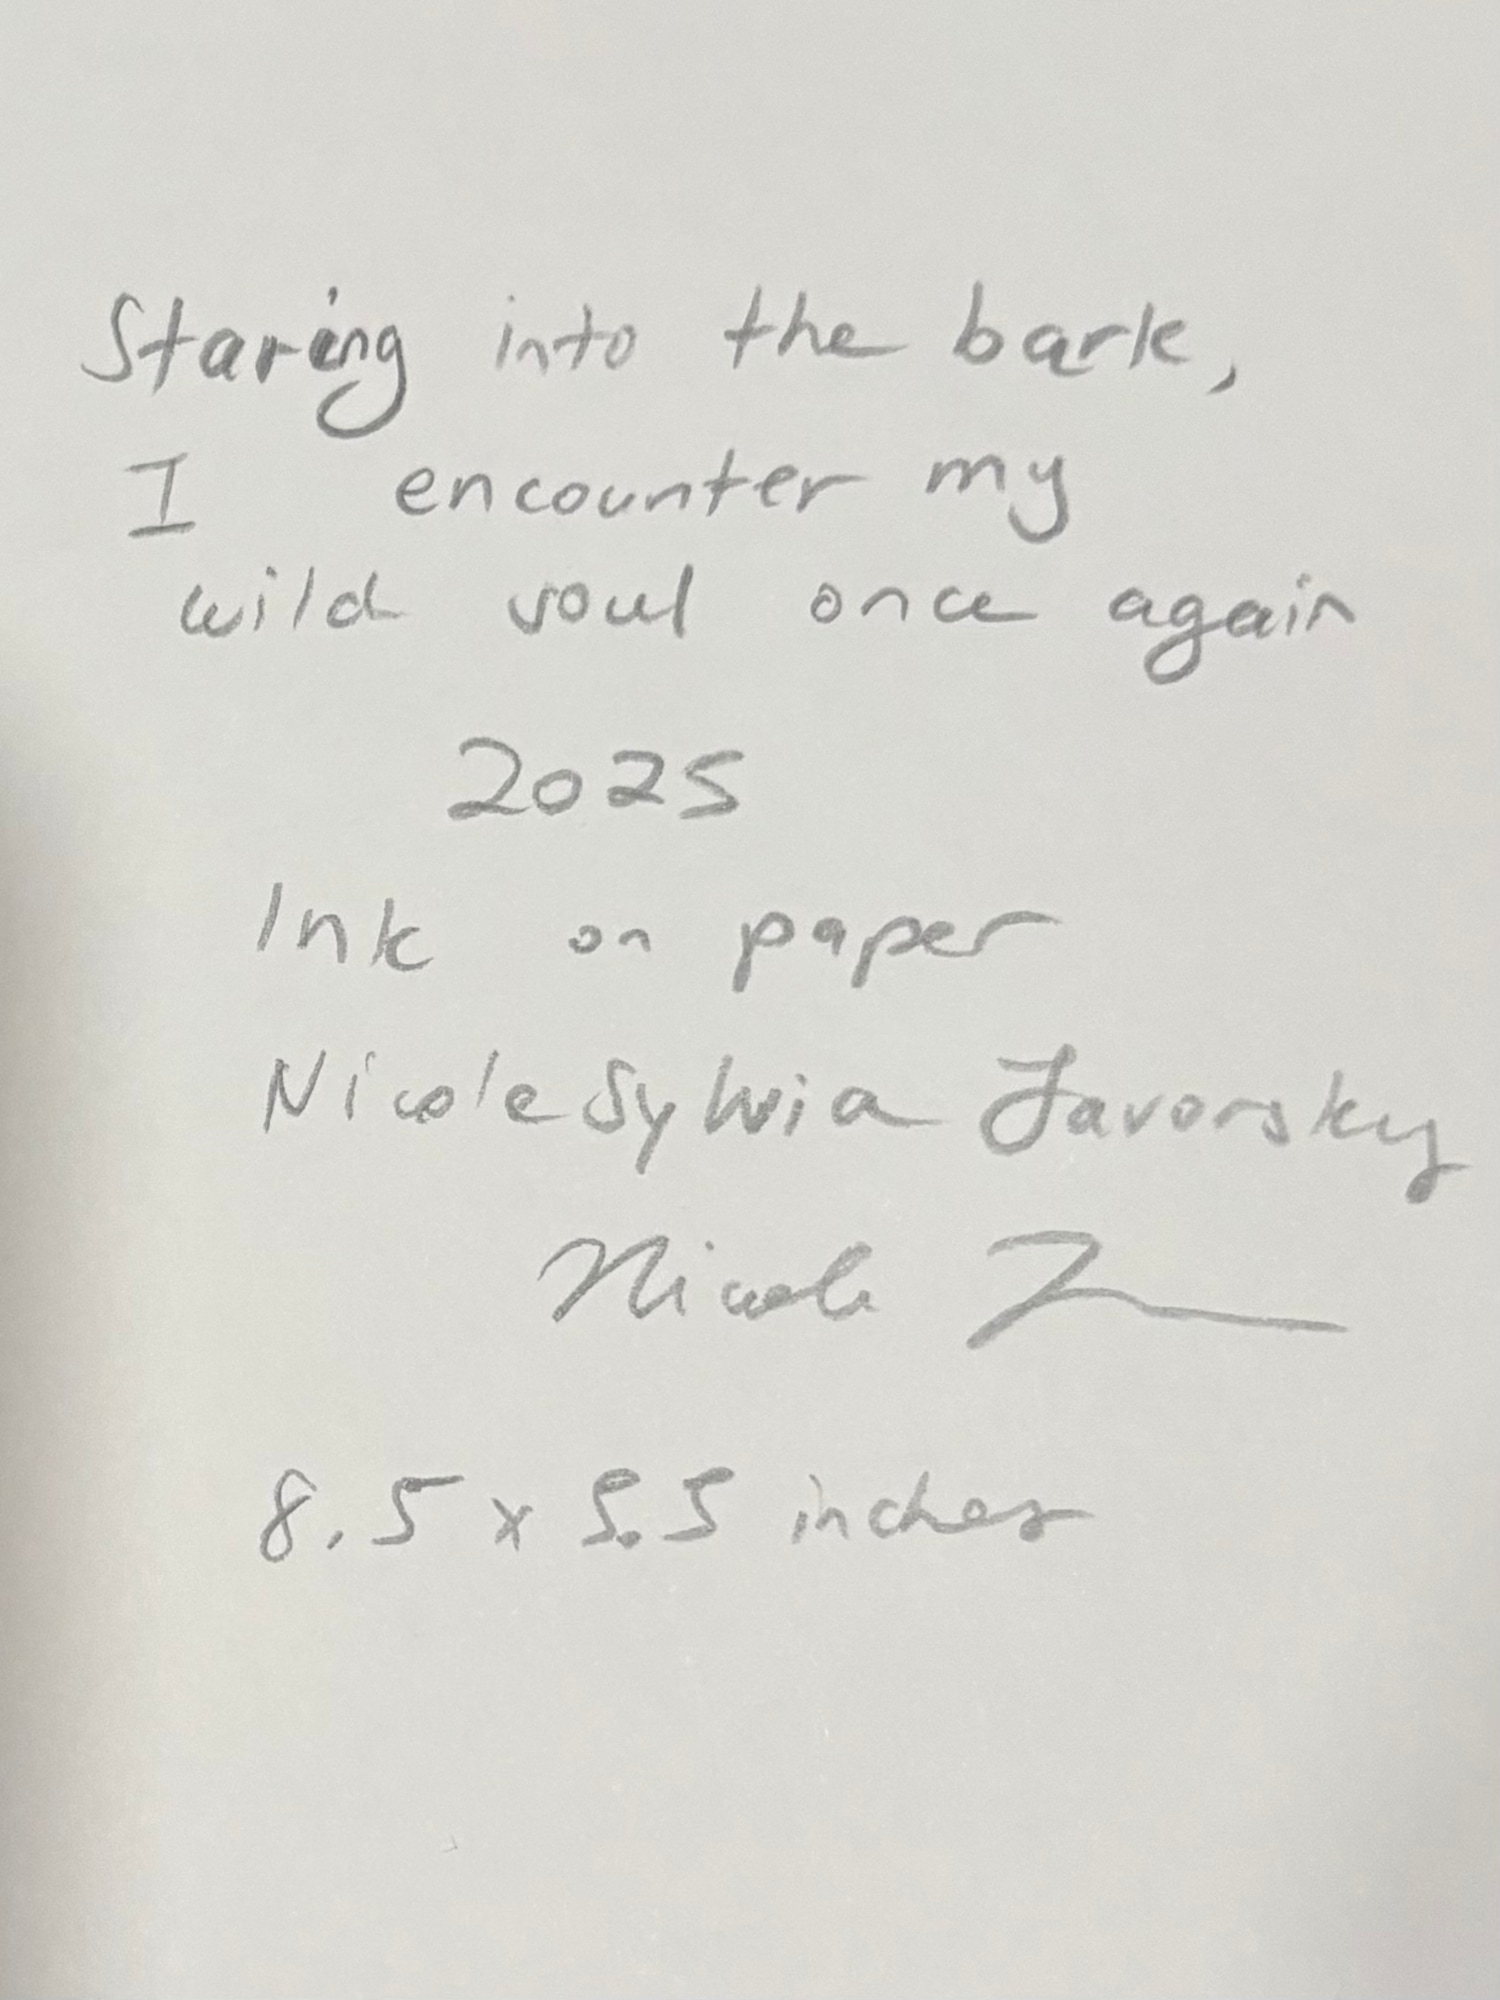 Staring into the bark,
I encounter my
wild soul once again
2025
Ink on paper
Nicole Sylvia Javorsky
Nicole J
8.5 x 5.5 inches